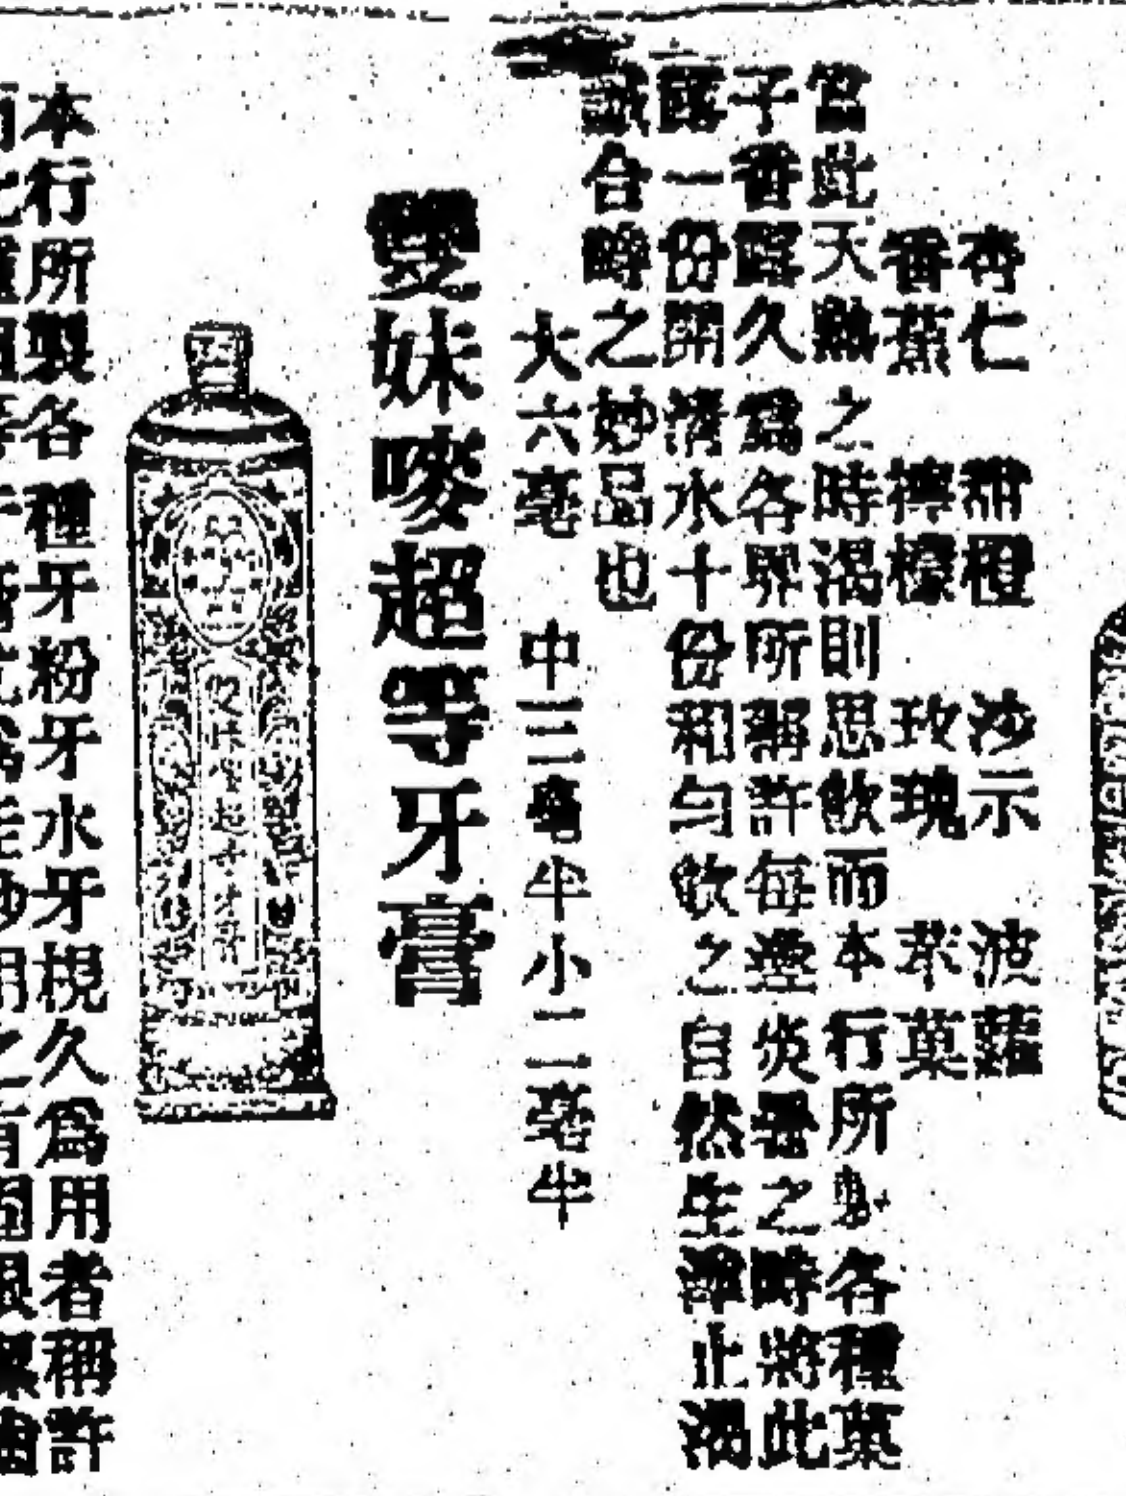 杏仁 甜橙 沙示 波蘿
香蕉 檸檬 玫瑰 苹菓
當此天熱之時渴則思飲而本行所製各種菓
子香露久爲各界所稱許每逢炎暑之時將此
露一份開清水十份和勻飲之自然生津止渴
誠合時之妙品也
大六毫 中三毫半 小二毫半
雙妹嘜超等牙膏
本行所製各種牙粉牙水牙梘久爲用者稱許